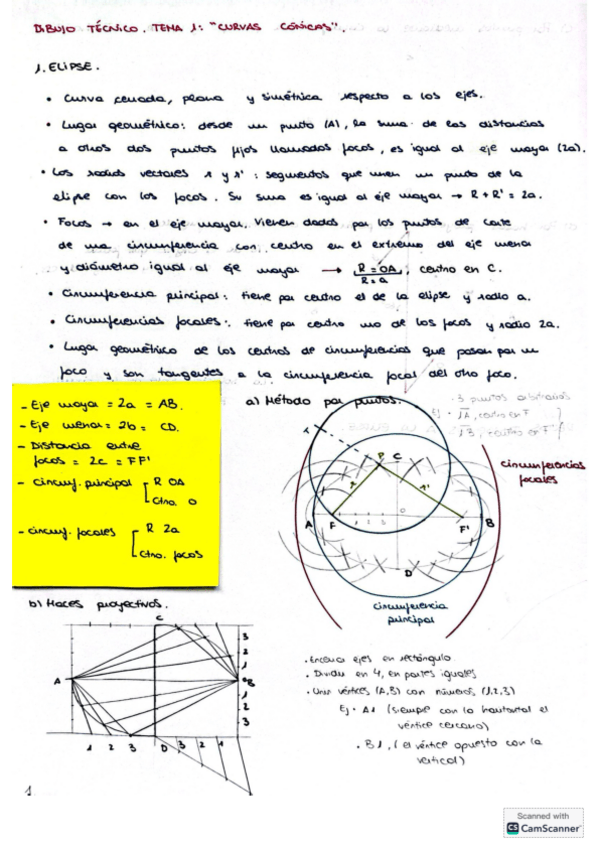 DIBUJO TÉCNICO. TEMA 1: "CURVAS CÓNICAS".
1. ELIPSE.
• Curva cerrada, plana y simétrica respecto a los ejes.
• Lugar geométrico: desde un punto (A), la suma de las distancias
a otros dos puntos fijos llamados focos, es igual al eje mayor (2a).
• Los radios vectores r y r': segmentos que unen un punto de la
elipse con los focos. Su suma es igual al eje mayor → R + R' = 2a.
• Focos → en el eje mayor. Vienen dados por los puntos de corte
de una circunferencia con centro en el extremo del eje menor
y diámetro igual al eje mayor → R = OA; centro en C.
R = a
• Circunferencia principal: tiene por centro el de la elipse y radio a.
• Circunferencias focales: tiene por centro uno de los focos y radio 2a.
• Lugar geométrico de los centros de circunferencias que pasan por un
foco y son tangentes a la circunferencia focal del otro foco.
- Eje mayor = 2a = AB.
- Eje menor = 2b = CD.
- Distancia entre
focos = 2c = FF'
- Circunf. principal R OA
Ctro. O
- circunf. focales R 2a
Ctro. focos
a) Método por puntos.
3 puntos arbitrarios
Ej. 1A, centro en F
1B, centro en F'
P C
r r'
A F O F' B
D
circunferencias
focales
circunferencia
principal
b) Haces proyectivos.
C
3
2
1
A O B
1
2
3
1 2 3 D 3 2 1
• Encerrar ejes en rectángulo
• Dividir en 4, en partes iguales
• Unir vértices (A,B) con números (1,2,3)
Ej • A1 (siempre con la horizontal el
vértice cercano)
• B1, (el vértice opuesto con la
vertical)
1.
Scanned with
CS CamScanner